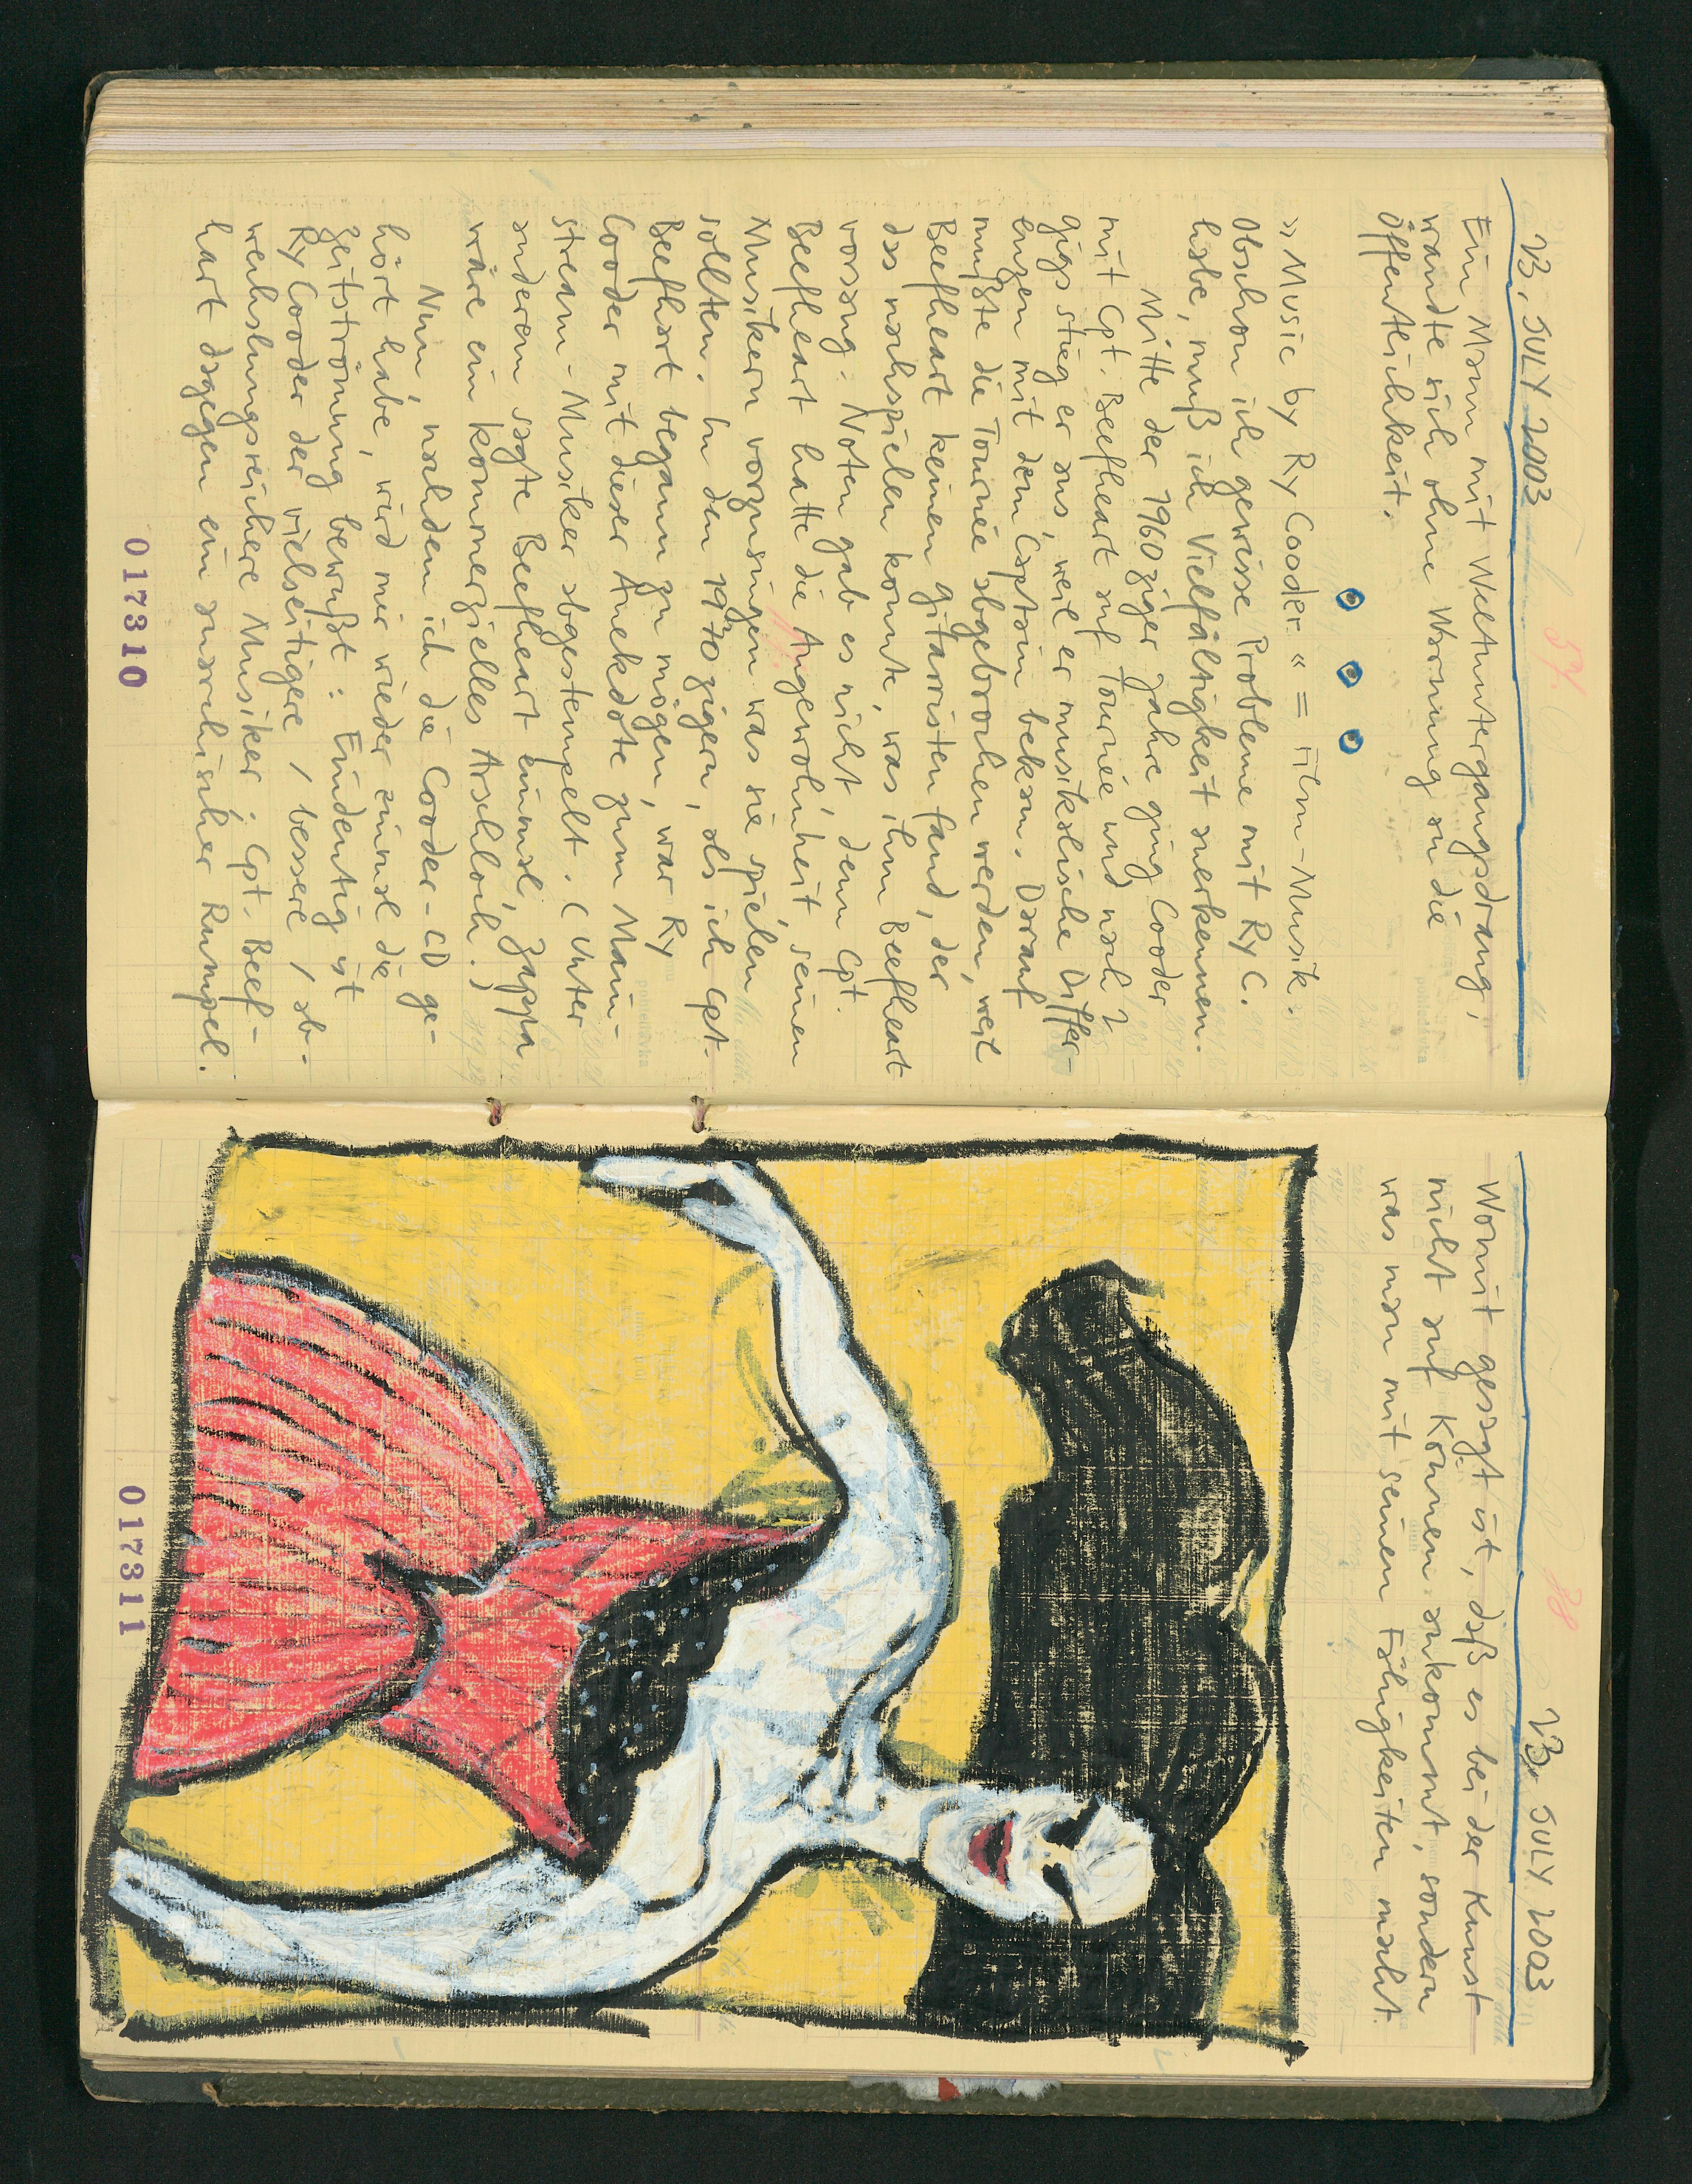 23. JULY 2003
Ein Mann mit Weltuntergangsdrang,
wandte sich ohne Warnung an die
Öffentlichkeit.
»Music by Ry Cooder« = Film-Musik.
Obschon ich gewisse Probleme mit Ry C.
habe, muß ich Vielfältigkeit anerkennen.
Mitte der 1960ziger Jahre ging Cooder
mit Cpt. Beefheart auf Tournée und nach 2
gigs stieg er aus, weil er musikalische Differ-
enzen mit dem Captain bekam. Darauf
mußte die Tournée abgebrochen werden, weil
Beefheart keinen Gitarristen fand, der
das nachspielen konnte, was ihm Beefheart
vorsang. Noten gab es nicht, denn Cpt.
Beefheart hatte die Angewohnheit, seinen
Musikern vorzusingen was sie spielen
sollten. In den 1970zigern, als ich Cpt.
Beefhart begann zu mögen, war Ry
Cooder mit dieser Anekdote zum Main-
stream-Musiker abgestempelt. (Unter
anderem sagte Beefheart einmal, Zappa
wäre ein kommerzielles Arschloch.)
Nun, nachdem ich die Cooder-CD ge-
hört habe, wird mir wieder einmal die
Zeitströmung bewußt: Eindeutig ist
Ry Cooder der vielseitigere / bessere / ab-
wechslungsreichere Musiker; Cpt. Beef-
hart dagegen ein anarchischer Rumpel.
017310
23. JULY 2003
Womit gesagt ist, daß es bei der Kunst
nicht auf Können ankommt, sondern
was man mit seinen Fähigkeiten macht.
017311